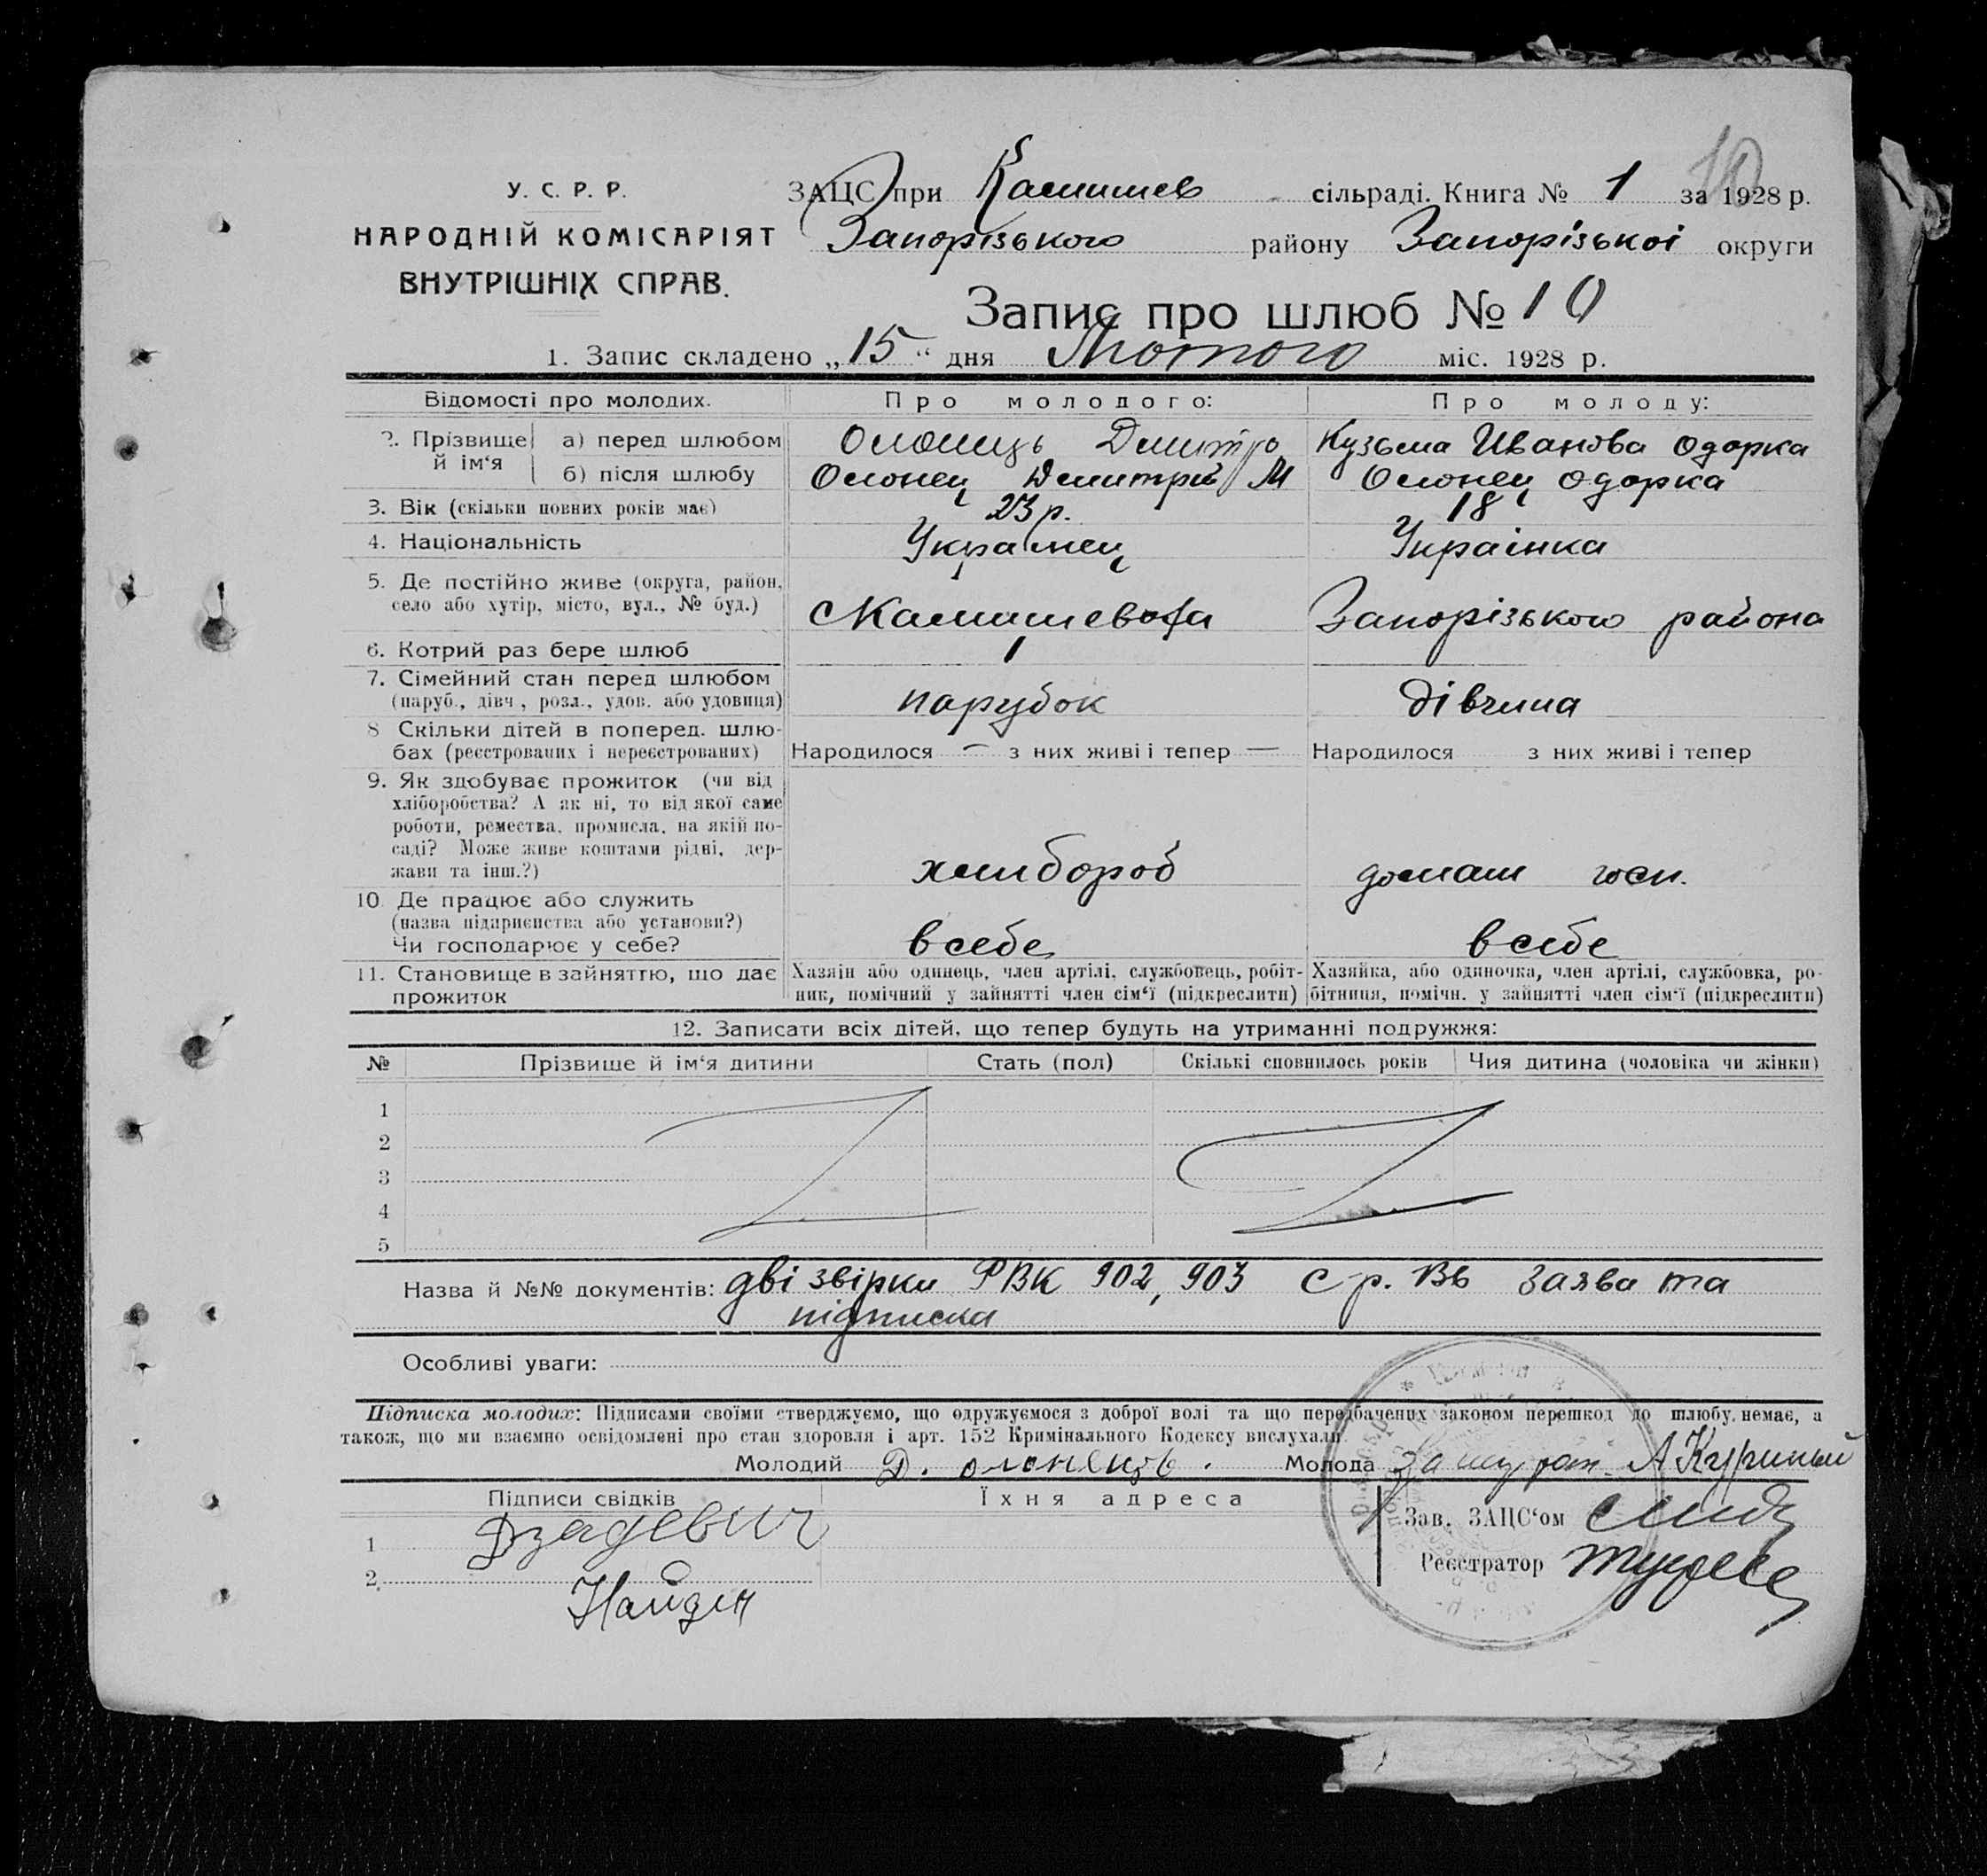 10
У. С. Р. Р.
НАРОДНІЙ КОМІСАРІЯТ
ВНУТРІШНІХ СПРАВ.
ЗАЦС при Камишев сільраді. Книга № 1 за 1928 р.
Запорізького району Запорізькоі округи
Запис про шлюб № 10
1. Запис складено „15“ дня Лютого міс. 1928 р.
Відомості про молодих. Про молодого: Про молоду:
2. Прізвище й ім‘я а) перед шлюбом Олонець Дмитро Кузьма Иванова Одарка
б) після шлюбу Олонец Дмитрій М Олонец Одарка
3. Вік (скільки повних років має) 23 р. 18
4. Національність Украінец Украінка
5. Де постійно живе (округа, район, село або хутір, місто, вул., № буд.) Запорізького района
6. Котрий раз бере шлюб 1
7. Сімейний стан перед шлюбом (паруб., дівч., розл., удов. або удовиця) парубок дівчина
8 Скільки дітей в поперед. шлюбах (реєстрованих і нереєстрованих) Народилося — з них живі і тепер — Народилося з них живі і тепер
9. Як здобуває прожиток (чи від
хліборобства? А як ні, то від якої саме
роботи, ремества, промисла, на якій по-
саді? Може живе коштами рідні, дер-
жави та інш.?) хлибороб домаш госп.
10 Де працює або служить
(назва підприємства або установи?)
Чи господарює у себе? в себе в себе
11. Становище в зайняттю, що дає прожиток
Хазяін або одинець, член артілі, службовець, робіт-
ник, помічний у зайнятті член сім‘ї (підкреслити)
Хазяйка, або одиночка, член артілі, службовка, ро-
бітниця, помічн. у зайнятті член сім‘ї (підкреслити)
12. Записати всіх дітей, що тепер будуть на утриманні подружжя:
№ Прізвище й ім‘я дитини Стать (пол) Скількі сповнилось років Чия дитина (чоловіка чи жінки)
1
2
3
4
5
Назва й №№ документів: дві звірки РВК 902, 903 с р. Вь заява та
підписка
Особливі уваги:
Підписка молодих: Підписами своїми стверджуємо, що одружуємося з доброї волі та що передбачених законом перешкод до шлюбу немає, а
також, що ми взаємно освідомлені про стан здоровля і арт. 152 Кримінального Кодексу вислухали
Молодий Д. олонецць. Молода За неграм. А Куриный
Підписи свідків Їхня адреса
Зав. ЗАЦС‘ом
1
Реєстратор
2 Найдэн